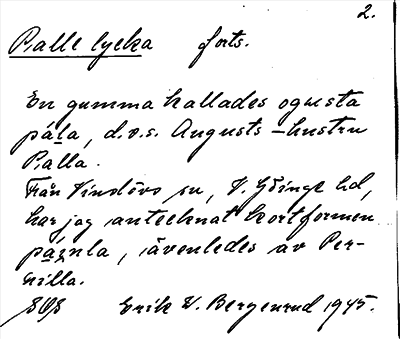 2.
Palle lycka forts.
En gumma kallades ogusta
påla, d.v.s. Augusts hustru
Palla.
Från Vinslövs sn, V. Göinge hd,
har jag antecknat kortformen
pänla, ävenledes av Per-
nilla.
Erik W. Bergenrud 1945.